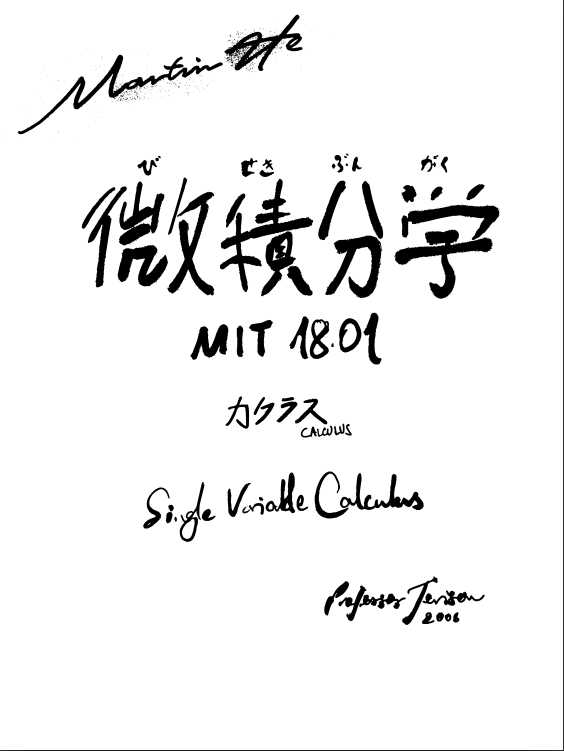 Martin He
び せき ぶん がく
微積分学
MIT 18.01
カクラス
CALCULUS
Single Variable Calculus
Professor Jerison
2006